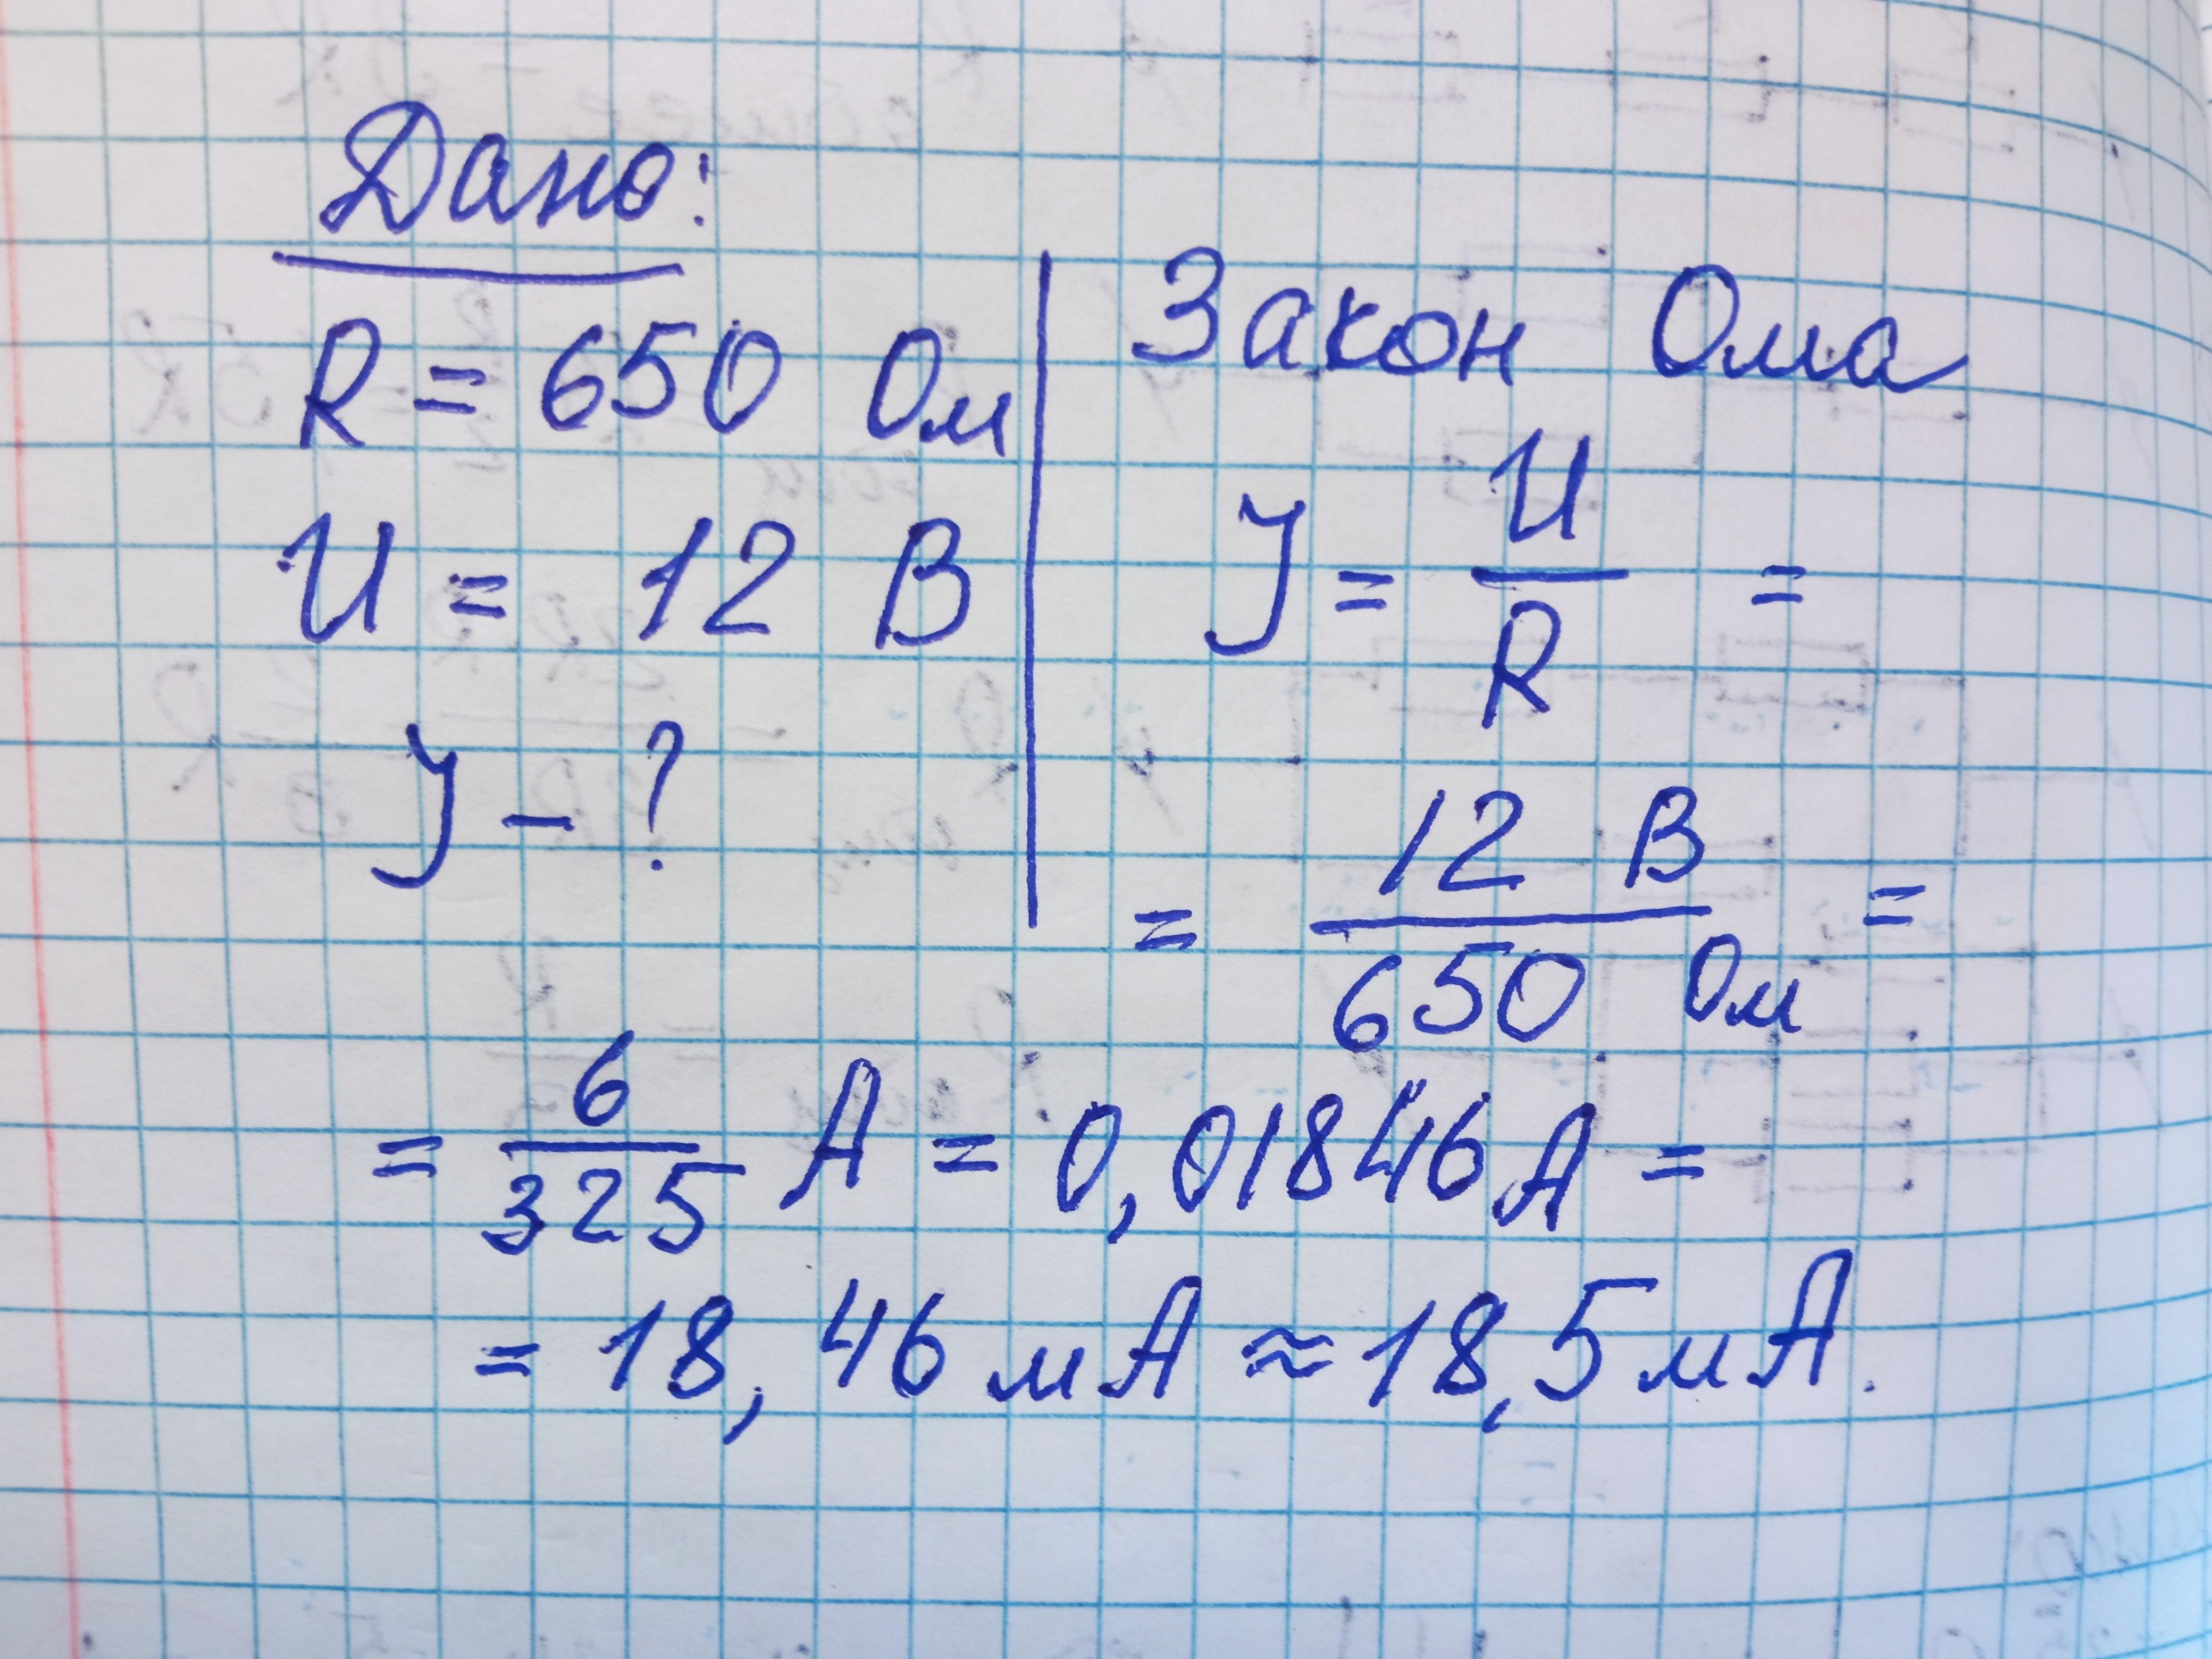 Дано:
R = 650 Ом
U = 12 В
J - ?
Закон Ома
J = U/R =
= 12 В / 650 Ом =
= 6/325 А = 0,01846 А =
= 18,46 мА ≈ 18,5 мА.